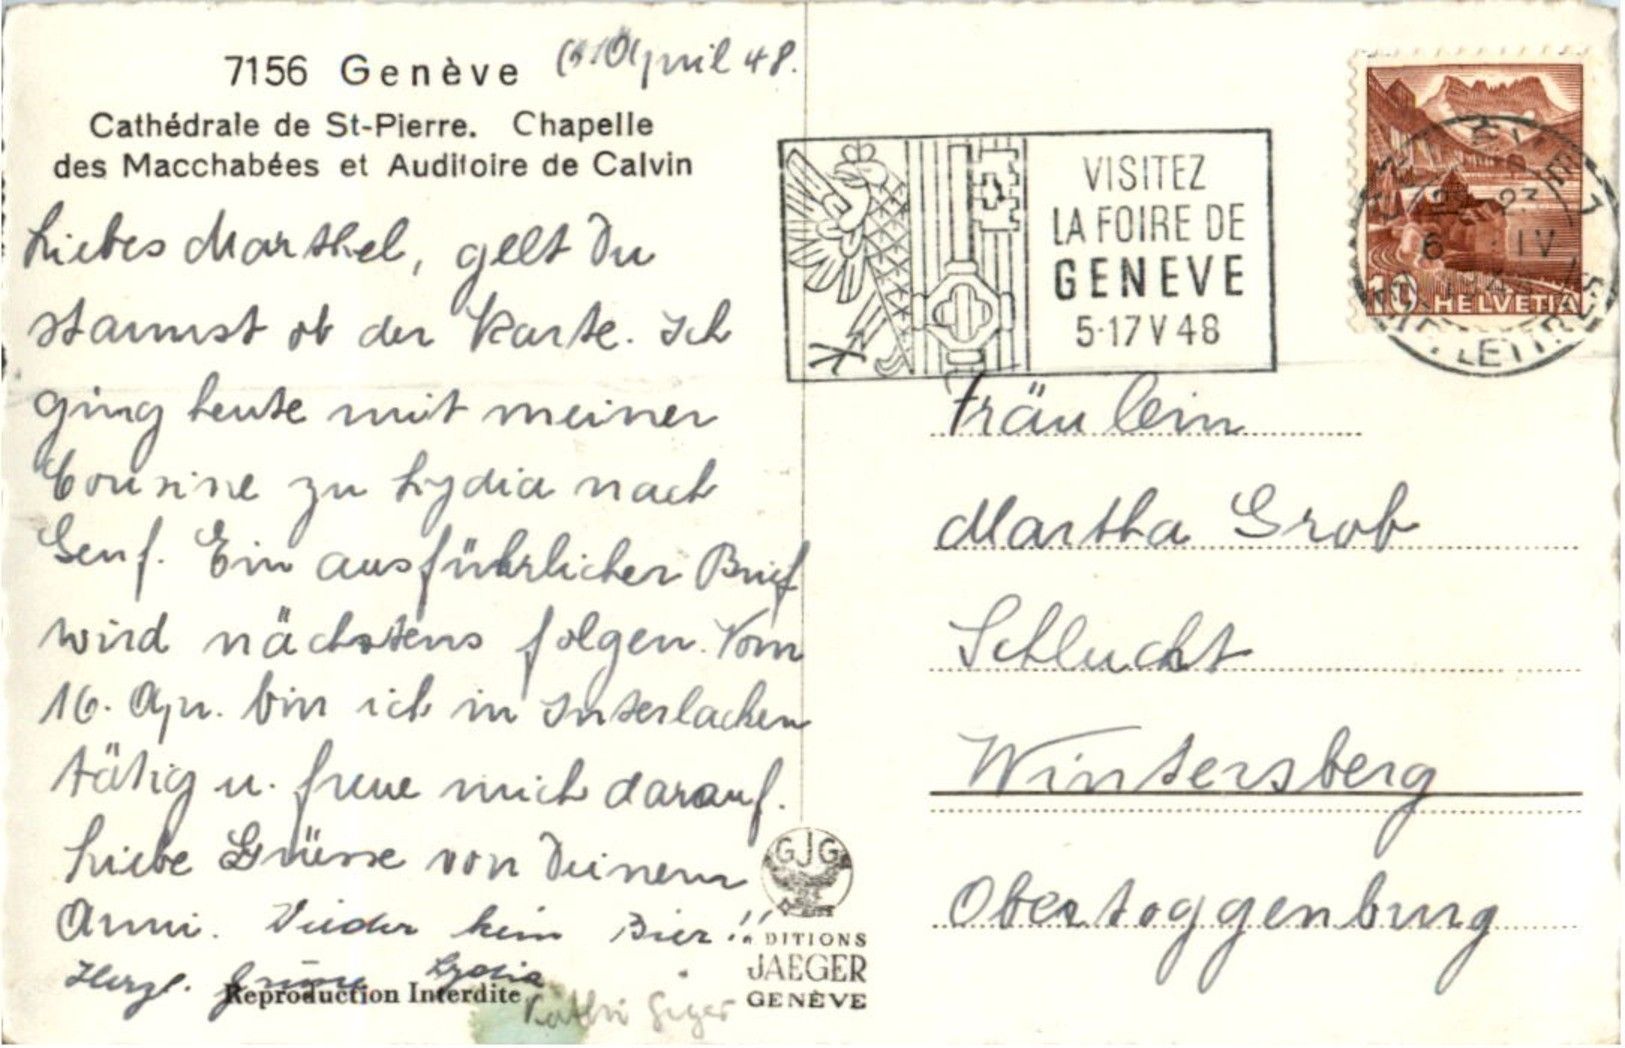 7156 Genève 6. April 48.
Cathédrale de St-Pierre. Chapelle
des Macchabées et Auditoire de Calvin
Liebes Marthel, gelt Du
staunst ob der Karte. Ich
ging heute mit meiner
Cousine zu Lydia nach
Genf. Ein ausführlicher Brief
wird nächstens folgen. Vom
16. Apr. bin ich in Interlacken
tätig u. freue mich darauf.
Liebe Grüsse von Deinem
Anni. Wieder kein Bier!!
Herzl. Grüsse Lydia
Reproduction Interdite
Kathri Giger
VISITEZ
LA FOIRE DE
GENEVE
5-17 V 48
GENÈVE 1
6 IV
LETTRES
10 HELVETIA
Fräulein
Martha Grob
Schlucht
Wintersberg
Obertoggenburg
GJG
EDITIONS
JAEGER
GENÈVE